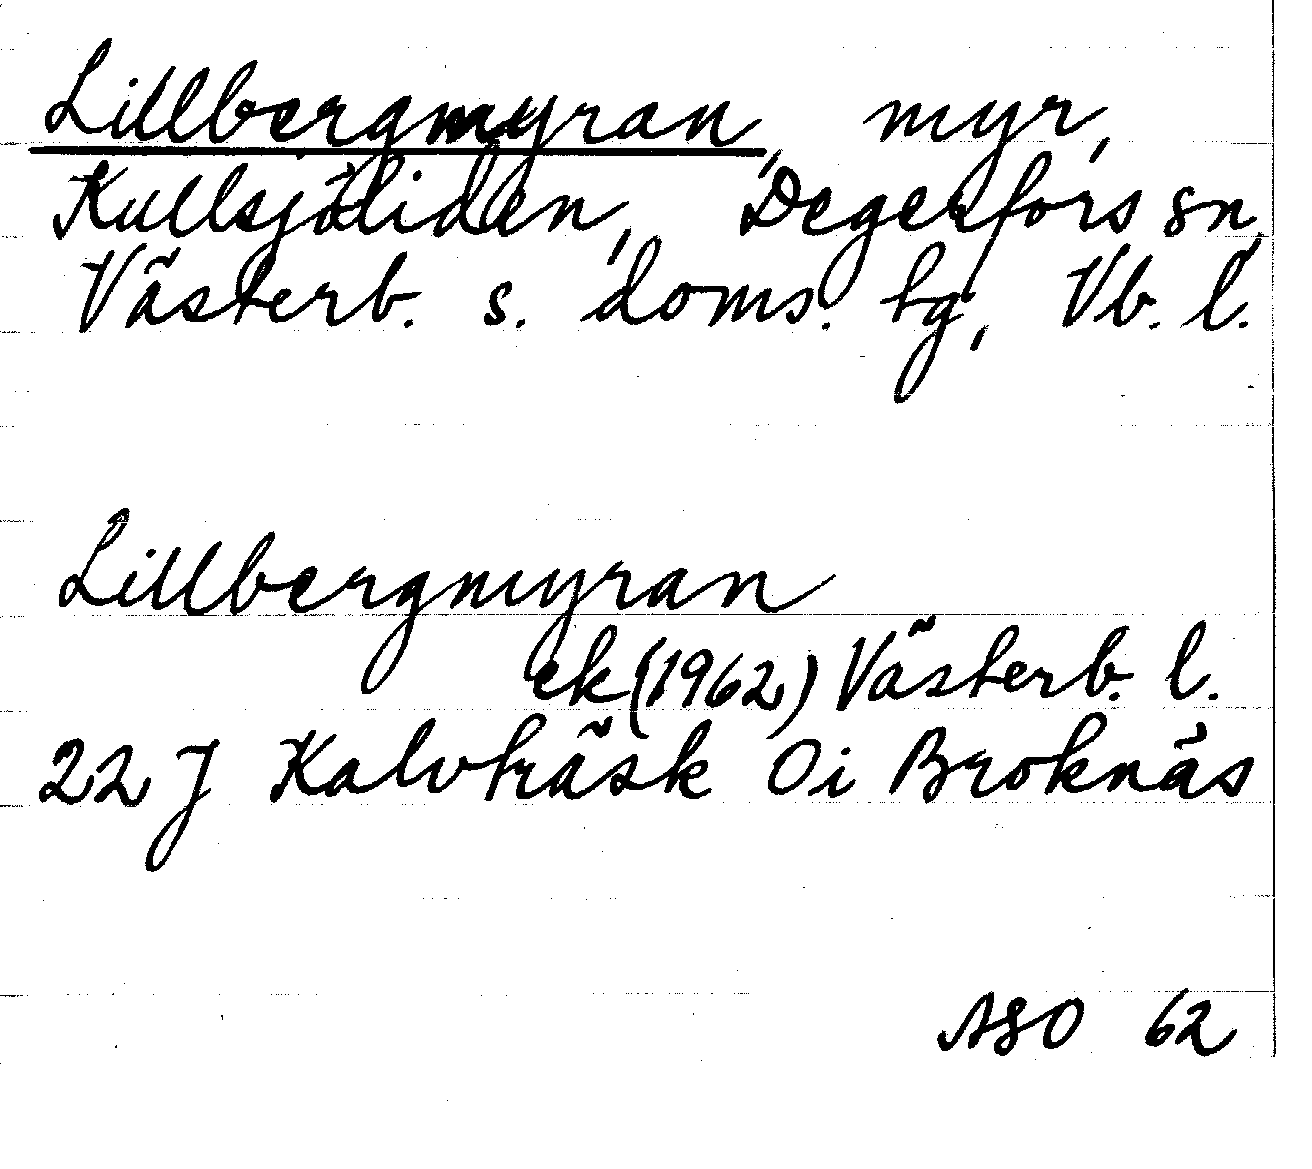 Lillbergmyran, myr,
Kullsjöliden, Degerfors sn,
Västerb. s. doms. tg, Vb. l.
Lillbergmyran
ek (1962) Västerb. l.
22 J Kalvträsk 0i Broknäs
ASO 62